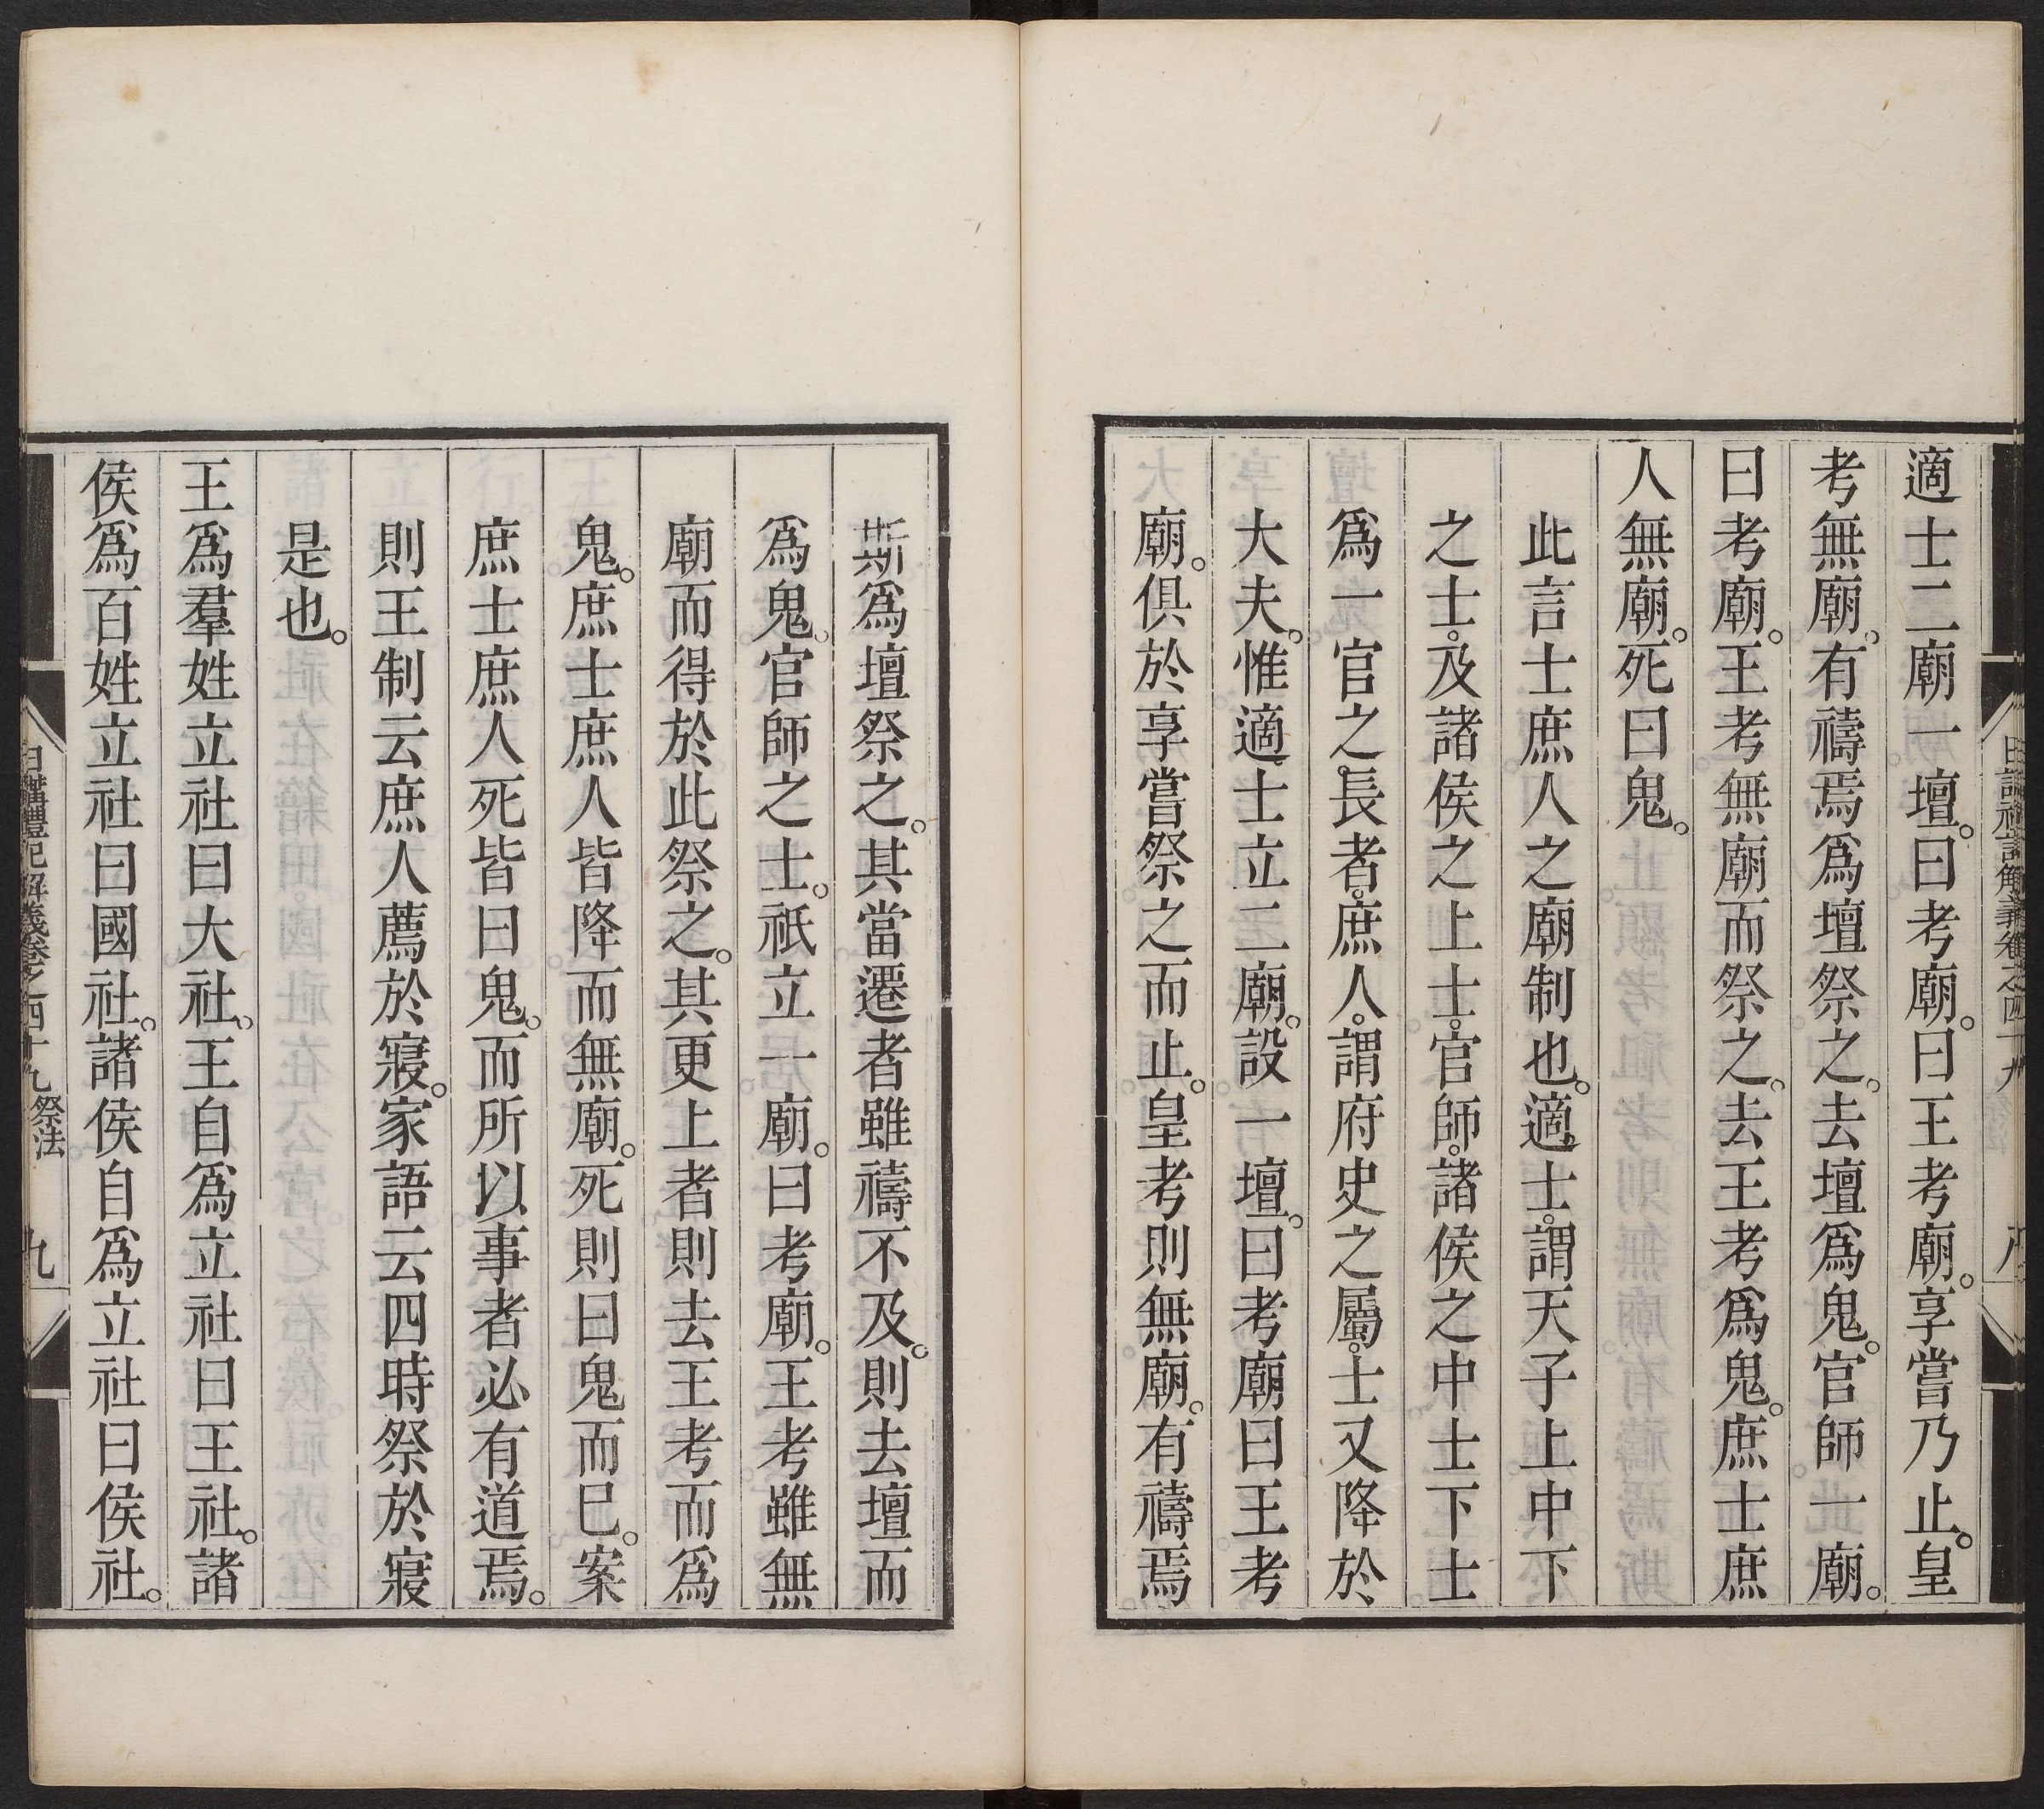 適士二廟一壇。曰考廟。曰王考廟。享嘗乃止。皇
考無廟。有禱焉爲壇祭之。去壇爲鬼。官師一廟。
曰考廟。王考無廟而祭之。去王考爲鬼。庶士庶
人無廟。死曰鬼。
此言士庶人之廟制也。適士。謂天子上中下
之士。及諸侯之上士。官師。諸侯之中士下士
爲一官之長者。庶人。謂府史之屬。士又降於
大夫。惟適士立二廟。設一壇。曰考廟曰王考
廟。俱於享嘗祭之而止。皇考則無廟。有禱焉
斯爲壇祭之。其當遷者雖禱不及。則去壇而
爲鬼。官師之士。祇立一廟。曰考廟。王考雖無
廟而得於此祭之。其更上者則去王考而爲
鬼。庶士庶人皆降而無廟。死則曰鬼而巳。案
庶士庶人死皆曰鬼。而所以事者必有道焉。
則王制云庶人薦於寢。家語云四時祭於寢
是也。
王爲羣姓立社曰大社。王自爲立社曰王社。諸
侯爲百姓立社曰國社。諸侯自爲立社曰侯社。
日講禮記解義卷之四十九 祭法 九